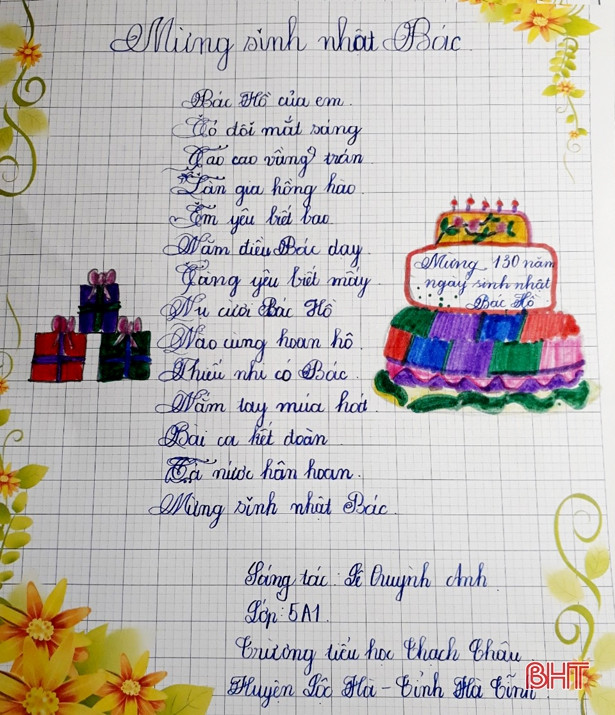 Mừng sinh nhật Bác
Bác Hồ của em
Có đôi mắt sáng
Cao cao vầng trán
Làn da hồng hào
Em yêu biết bao
Năm điều Bác dạy
Càng yêu biết mấy
Nụ cười Bác Hồ
Nào cùng hoan hô
Thiếu nhi có Bác
Nắm tay múa hát
Bài ca kết đoàn
Cả nước hân hoan
Mừng sinh nhật Bác.
Mừng 130 năm
ngày sinh nhật
Bác Hồ
Sáng tác: Lê Quỳnh Anh
Lớp: 5A1
Trường tiểu học Thạch Châu
Huyện Lộc Hà - Tỉnh Hà Tĩnh
BHT